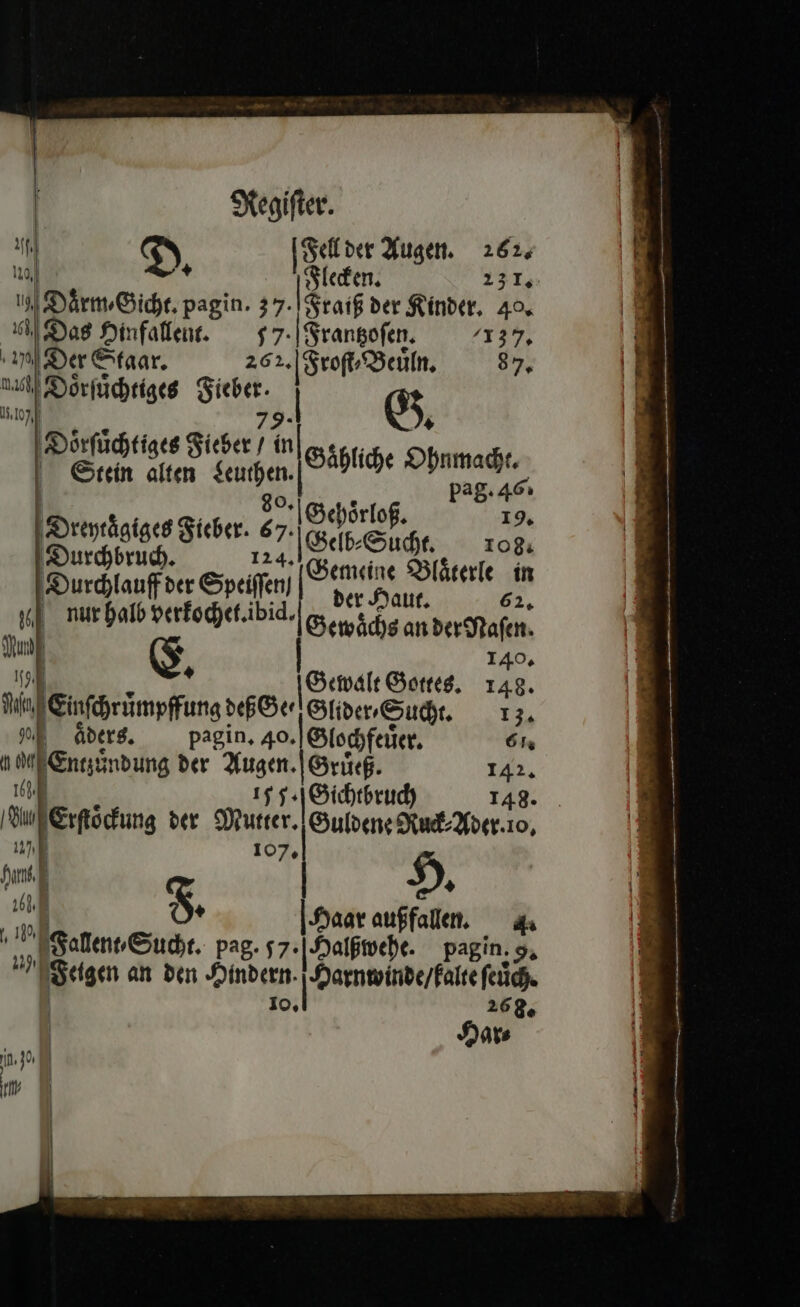 Regiſter.
D.
Daͤrm-Gicht. pagin. 37.
Das Hinfallent. 57.
Der Staar. 262.
Doͤrſuͤchtiges Fieber.
79.
Doͤrſuͤchtiges Fieber / in
Stein alten Leuthen.
80.
Dreytaͤgiges Fieber. 67.
Durchbruch. 124.
Durchlauff der Speiſſen /
nur halb verkochet. ibid.
E.
Einſchruͤmpffung deß Ge-
aͤders. pagin. 40.
Entzuͤndung der Augen.
155.
Erſtoͤckung der Mutter.
107.
F.
Fallent-Sucht. pag. 57.
Feigen an den Hindern.
10.
Fell der Augen. 262.
Flecken. 231.
Fraiß der Kinder. 40.
Frantzoſen. 137.
Froſt-Beuͤln. 87.
G.
Gaͤhliche Ohnmacht.
pag. 46.
Gehoͤrloß. 19.
Gelb-Sucht. 108.
Gemeine Blaͤterle in
der Haut. 62.
Gewaͤchs an der Naſen.
140.
Gewalt Gottes. 148.
Glider-Sucht. 13.
Glochfeuͤer. 61.
Gruͤeß. 142.
Gichtbruch 148.
Guldene Ruck-Ader. 10.
H.
Haar außfallen. 4.
Halßwehe. pagin. 9.
Harnwinde / kalte ſeuͤch.
268.
Har-